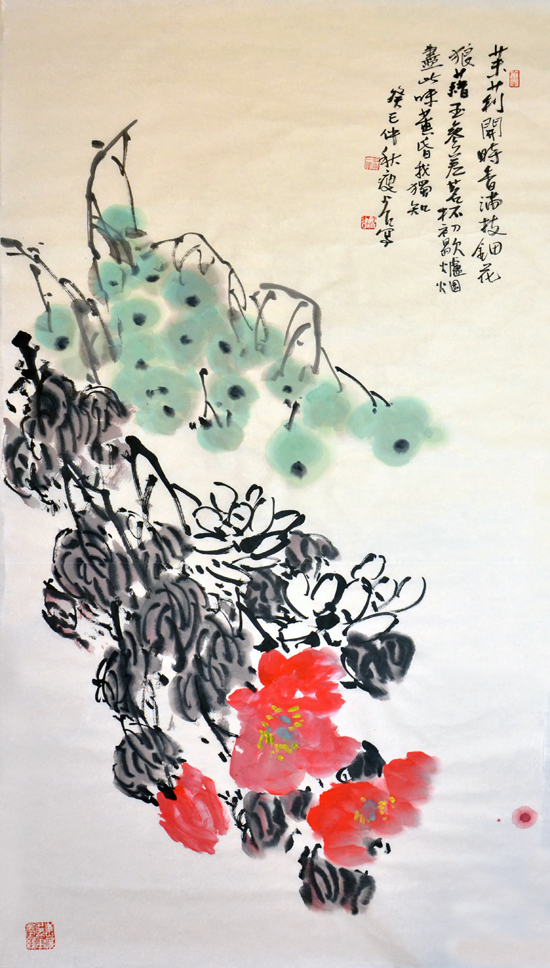 茉莉開時香滿枝鈿花
狼藉玉參差茗杯初歇爐烟
盡此味黄昏我獨知
癸巳仲秋瘦石寫